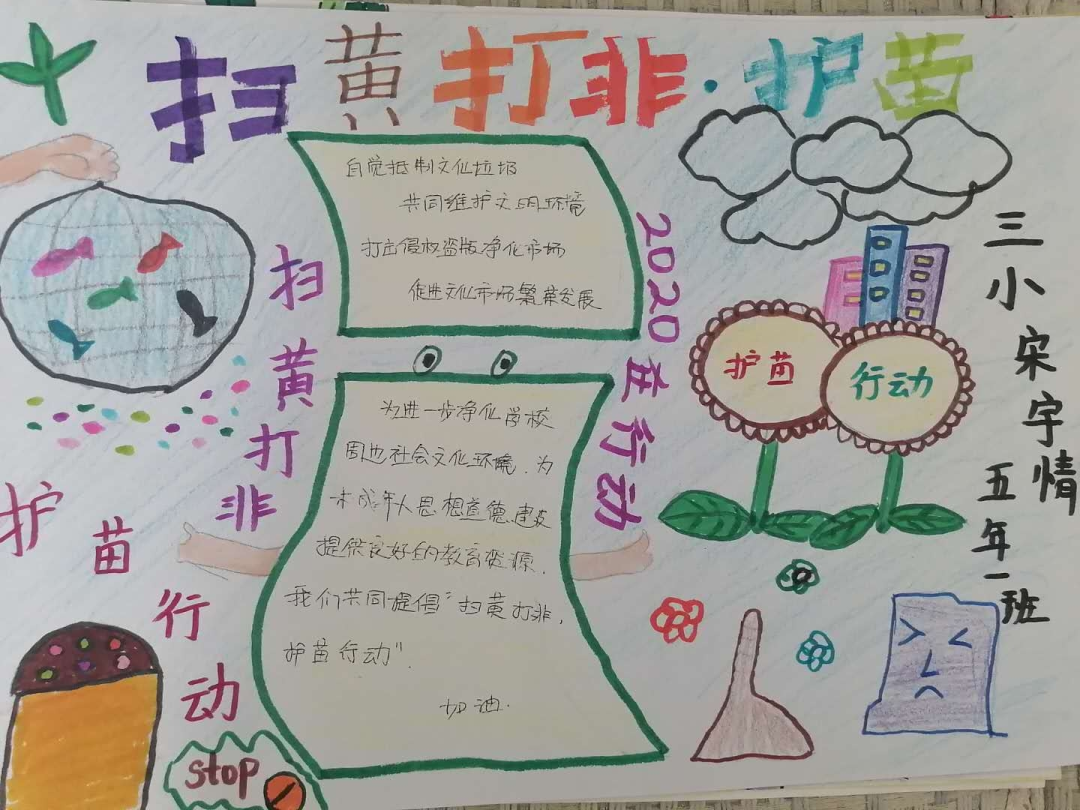 扫黄打非·护苗
自觉抵制文化垃圾
共同维护文明环境
打击侵权盗版净化市场
促进文化市场繁荣发展
扫黄打非
2020在行动
三小宋宇情
五年一班
护苗
行动
为进一步净化学校
周边社会文化环境、为
未成年人思想道德建设
提供良好的教育资源.
我们共同提倡“扫黄打非,
护苗行动”.
加油.
护苗行动
stop